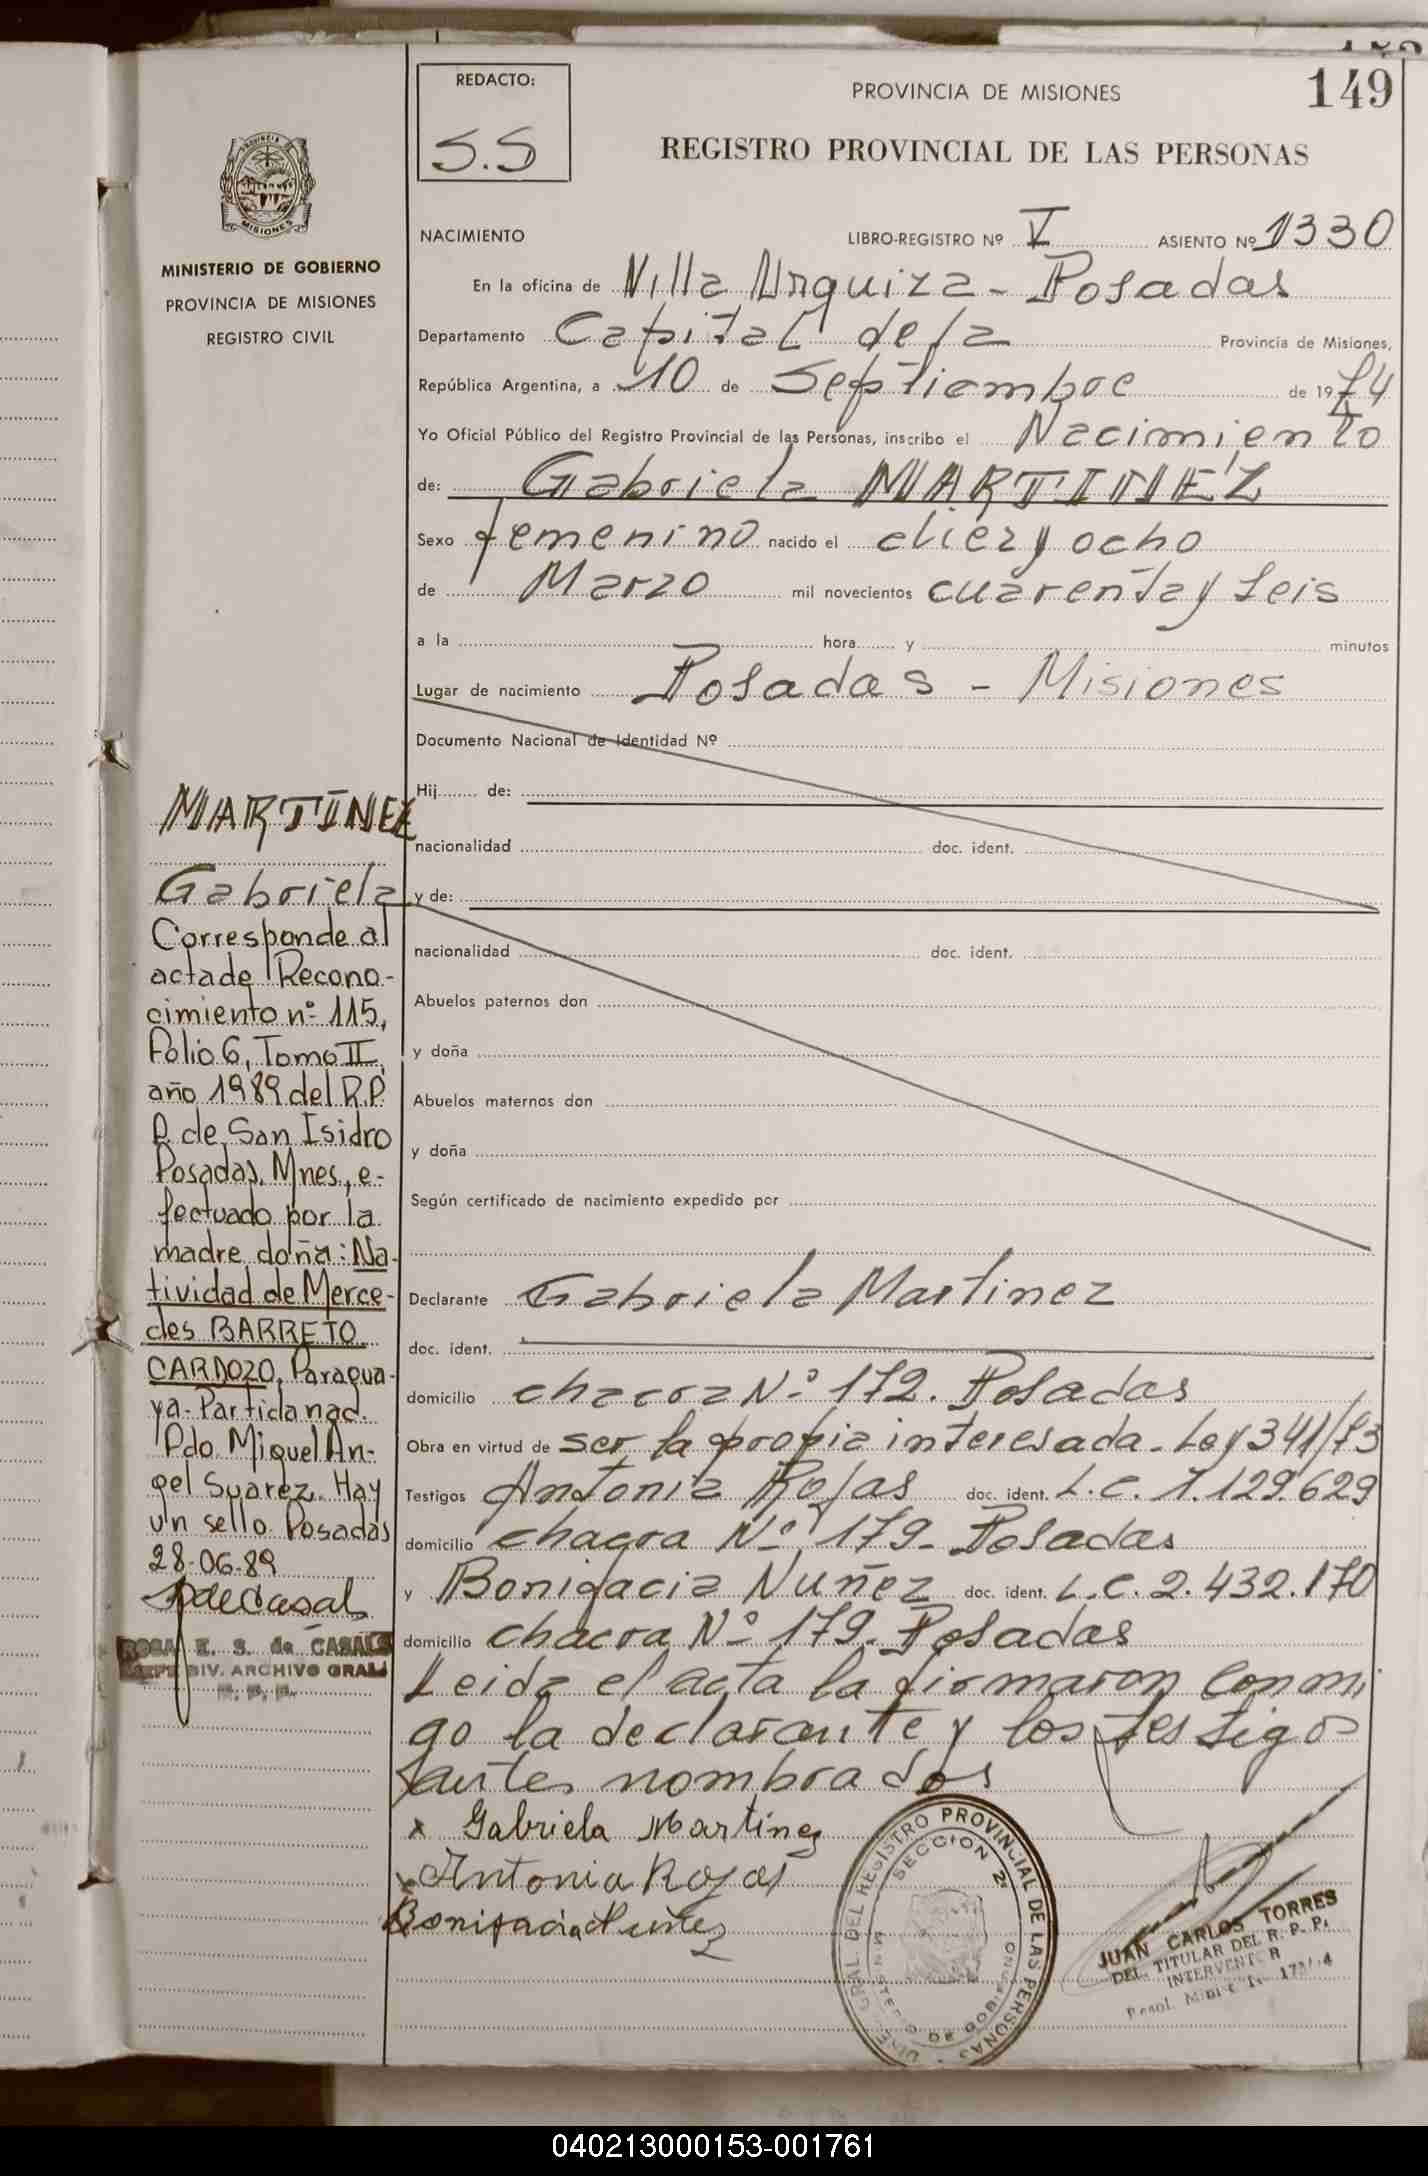 149
REDACTO:
S.S
PROVINCIA DE MISIONES
REGISTRO PROVINCIAL DE LAS PERSONAS
PROVINCIA DE
MISIONES
MINISTERIO DE GOBIERNO
PROVINCIA DE MISIONES
REGISTRO CIVIL
NACIMIENTO LIBRO-REGISTRO Nº V ASIENTO Nº 1330
En la oficina de Villa Urquiza - Posadas
Departamento Capital de la Provincia de Misiones,
República Argentina, a 10 de Septiembre de 1974
Yo Oficial Público del Registro Provincial de las Personas, inscribo el Nacimiento
de: Gabriela MARTINEZ
Sexo femenino nacido el diez y ocho
de Marzo mil novecientos cuarenta y seis
a la hora y minutos
Lugar de nacimiento Posadas - Misiones
Documento Nacional de Identidad Nº
Hij de:
nacionalidad doc. ident.
y de:
nacionalidad doc. ident.
Abuelos paternos don
y doña
Abuelos maternos don
y doña
Según certificado de nacimiento expedido por
Declarante Gabriela Martinez
doc. ident.
domicilio chacra Nº 172. Posadas
Obra en virtud de ser la propia interesada - Ley 341/73
Testigos Antonia Rojas doc. ident. L.C. 1.129.629
domicilio chacra Nº 179 - Posadas
y Bonifacia Nuñez doc. ident. L.C. 2.432.170
domicilio chacra Nº 179. Posadas
Leida el acta la firmaron conmi
go la declarante y los testigos
antes nombrados
x Gabriela Martinez
x Antonia Rojas
Bonifacia Nuñez
MARTÍNEZ
Gabriela
Corresponde al
acta de Recono-
cimiento nº 115,
Folio 6, Tomo II,
año 1989 del R.P.
P. de San Isidro
Posadas, Mnes., e-
fectuado por la
madre doña: Na-
tividad de Merce-
des BARRETO
CARDOZO, Paragua-
ya - Partida nac.
Pdo. Miguel An-
gel Suarez. Hay
un sello. Posadas
28-06-89
ROSA E. S. de CASALS
JEFE DIV. ARCHIVO GRAL.
R. P. P.
DEL REGISTRO PROVINCIAL DE LAS PERSONAS
SECCION 2ª
MINISTERIO DE GOBIERNO
JUAN CARLOS TORRES
DEL. TITULAR DEL R. P. P.
INTERVENTOR
040213000153-001761